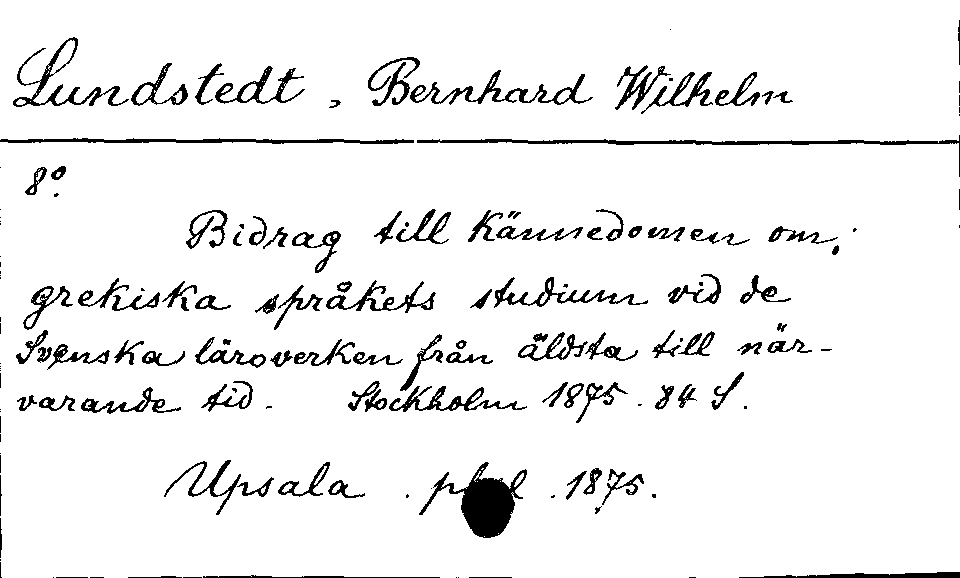 Lundstedt, Bernhard Wilhelm
8°.
Bidrag till Kännedomen om
grekiska språkets studium vid de
Svenska läroverken från äldsta till när-
varande tid. Stockholm 1875. 84 S.
Upsala. phil. 1875.